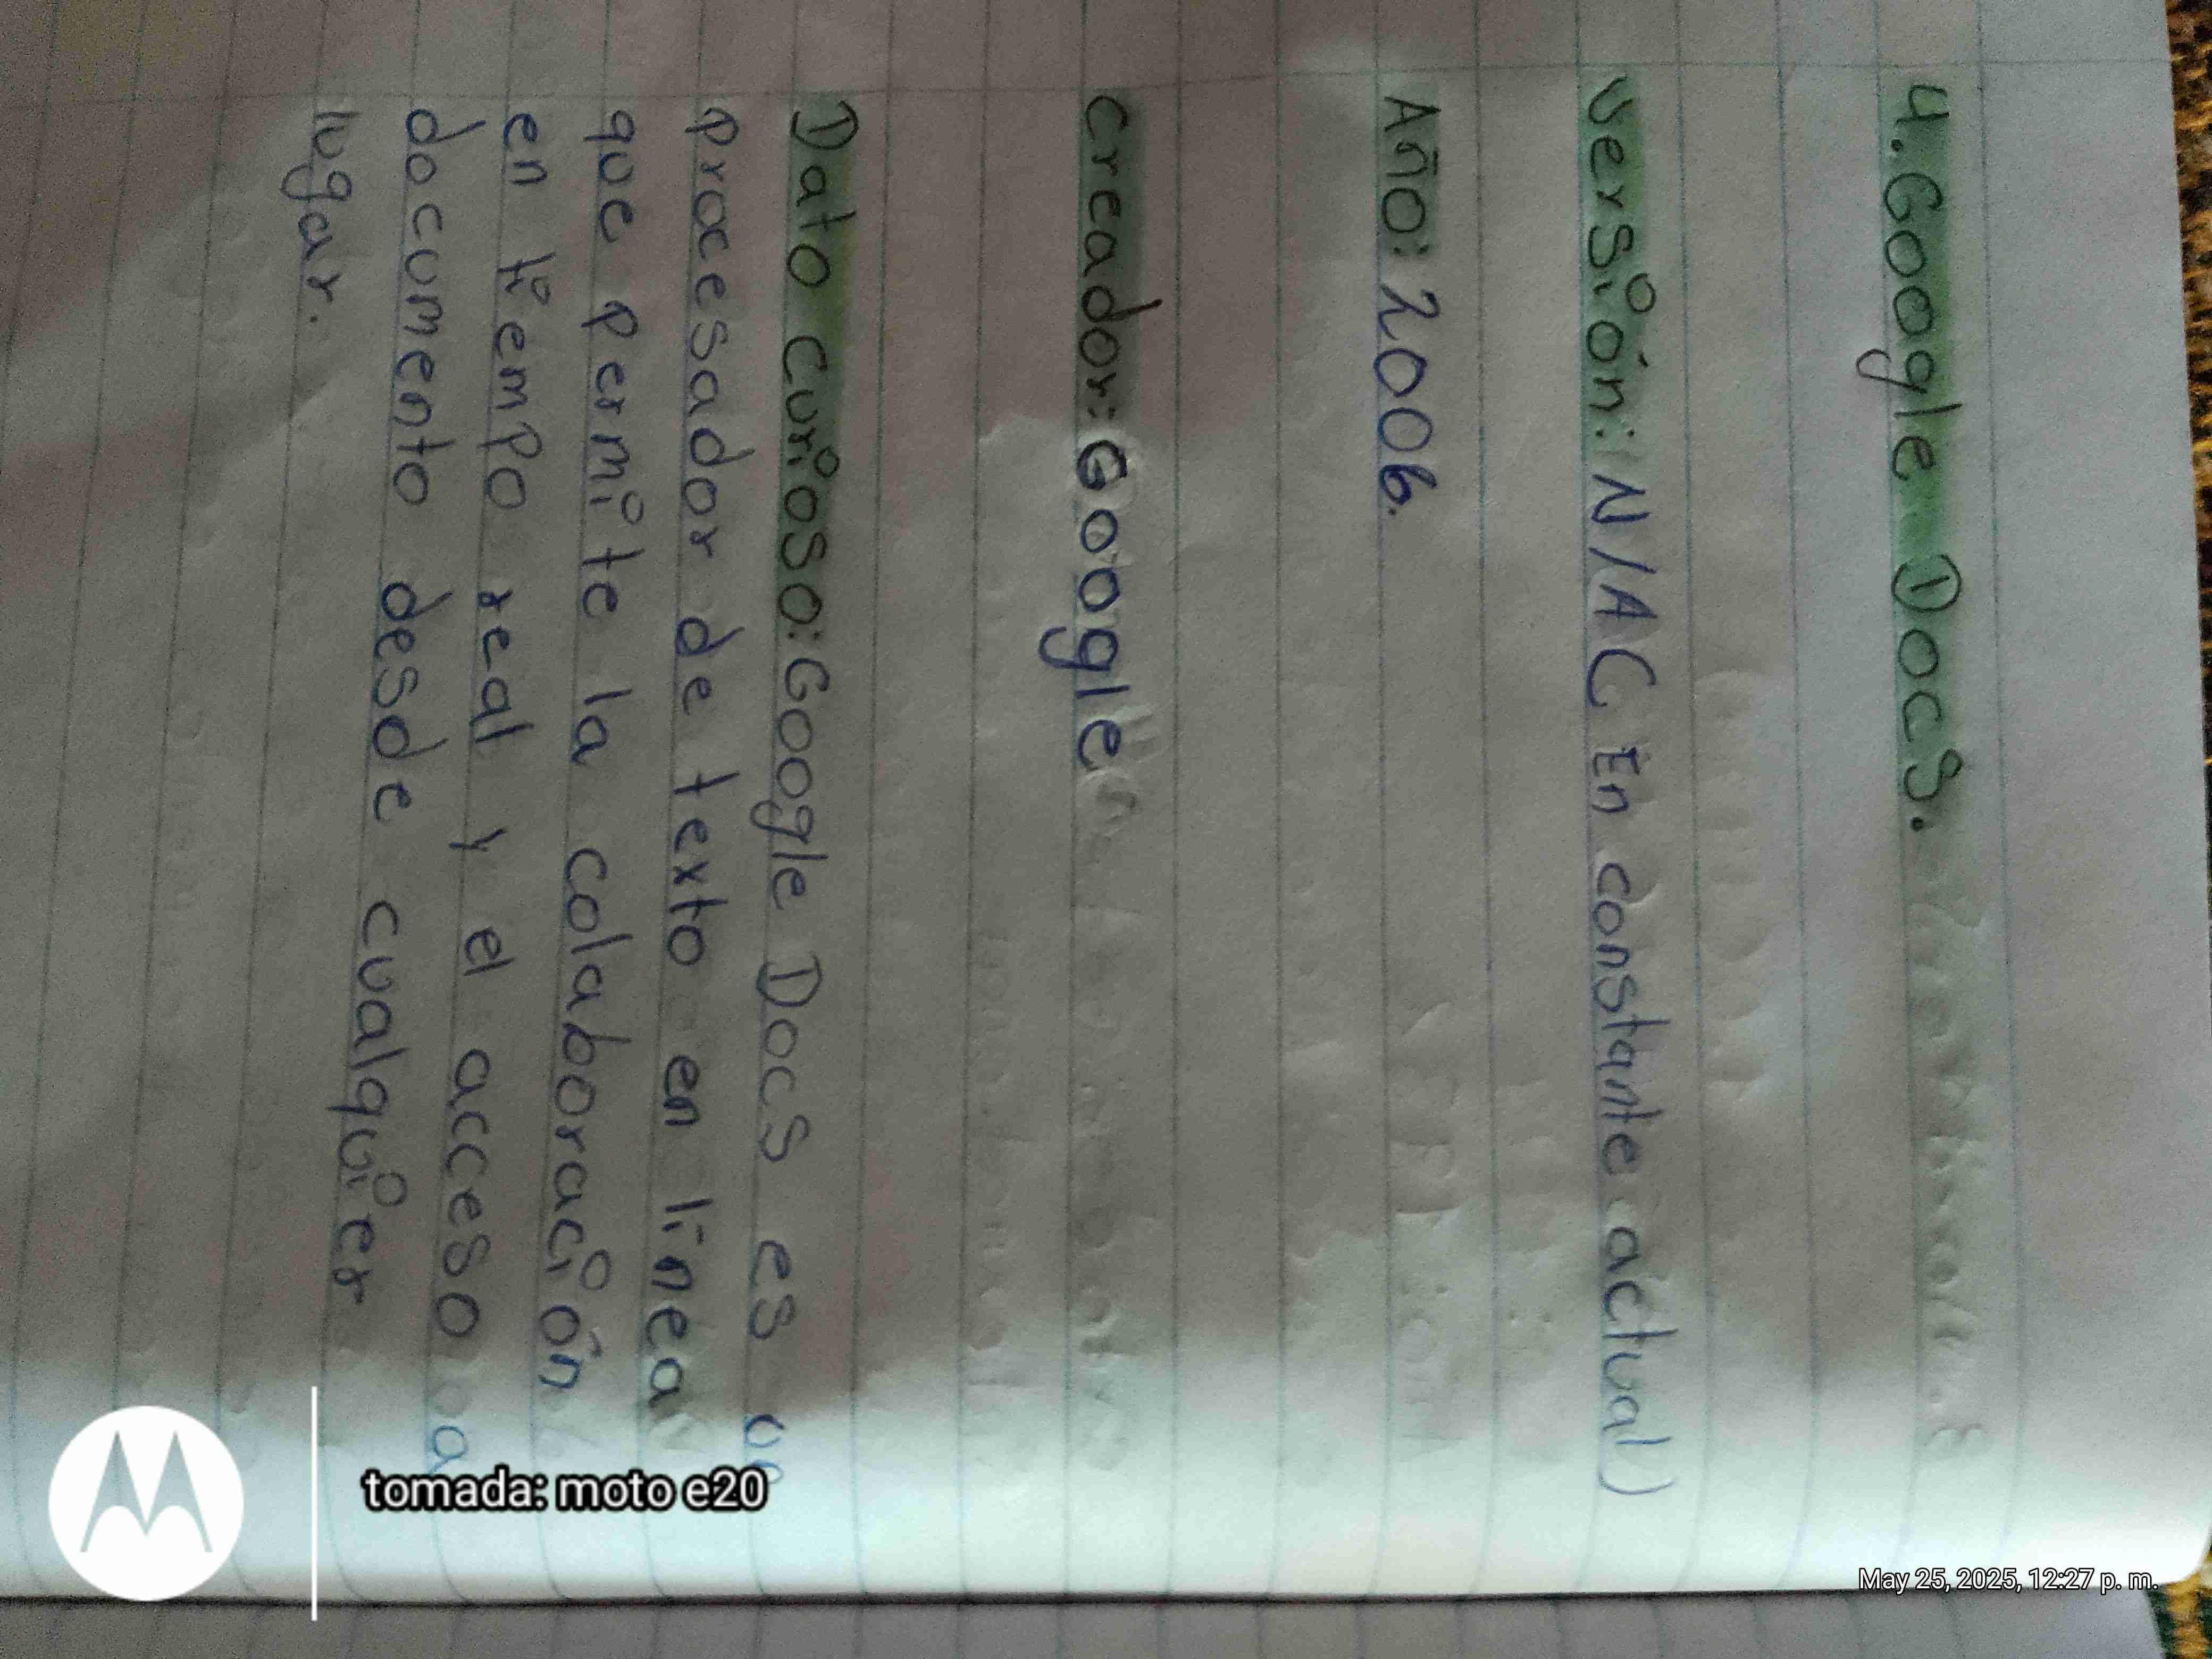 4. Google Docs.
Versión: N/AC En constante actual)
Año: 2006.
Creador: Google
Dato curioso: Google Docs es un
procesador de texto en línea
que permite la colaboración
en tiempo real y el acceso a
documento desde cualquier
lugar.
tomada: moto e20
May 25, 2025, 12:27 p. m.